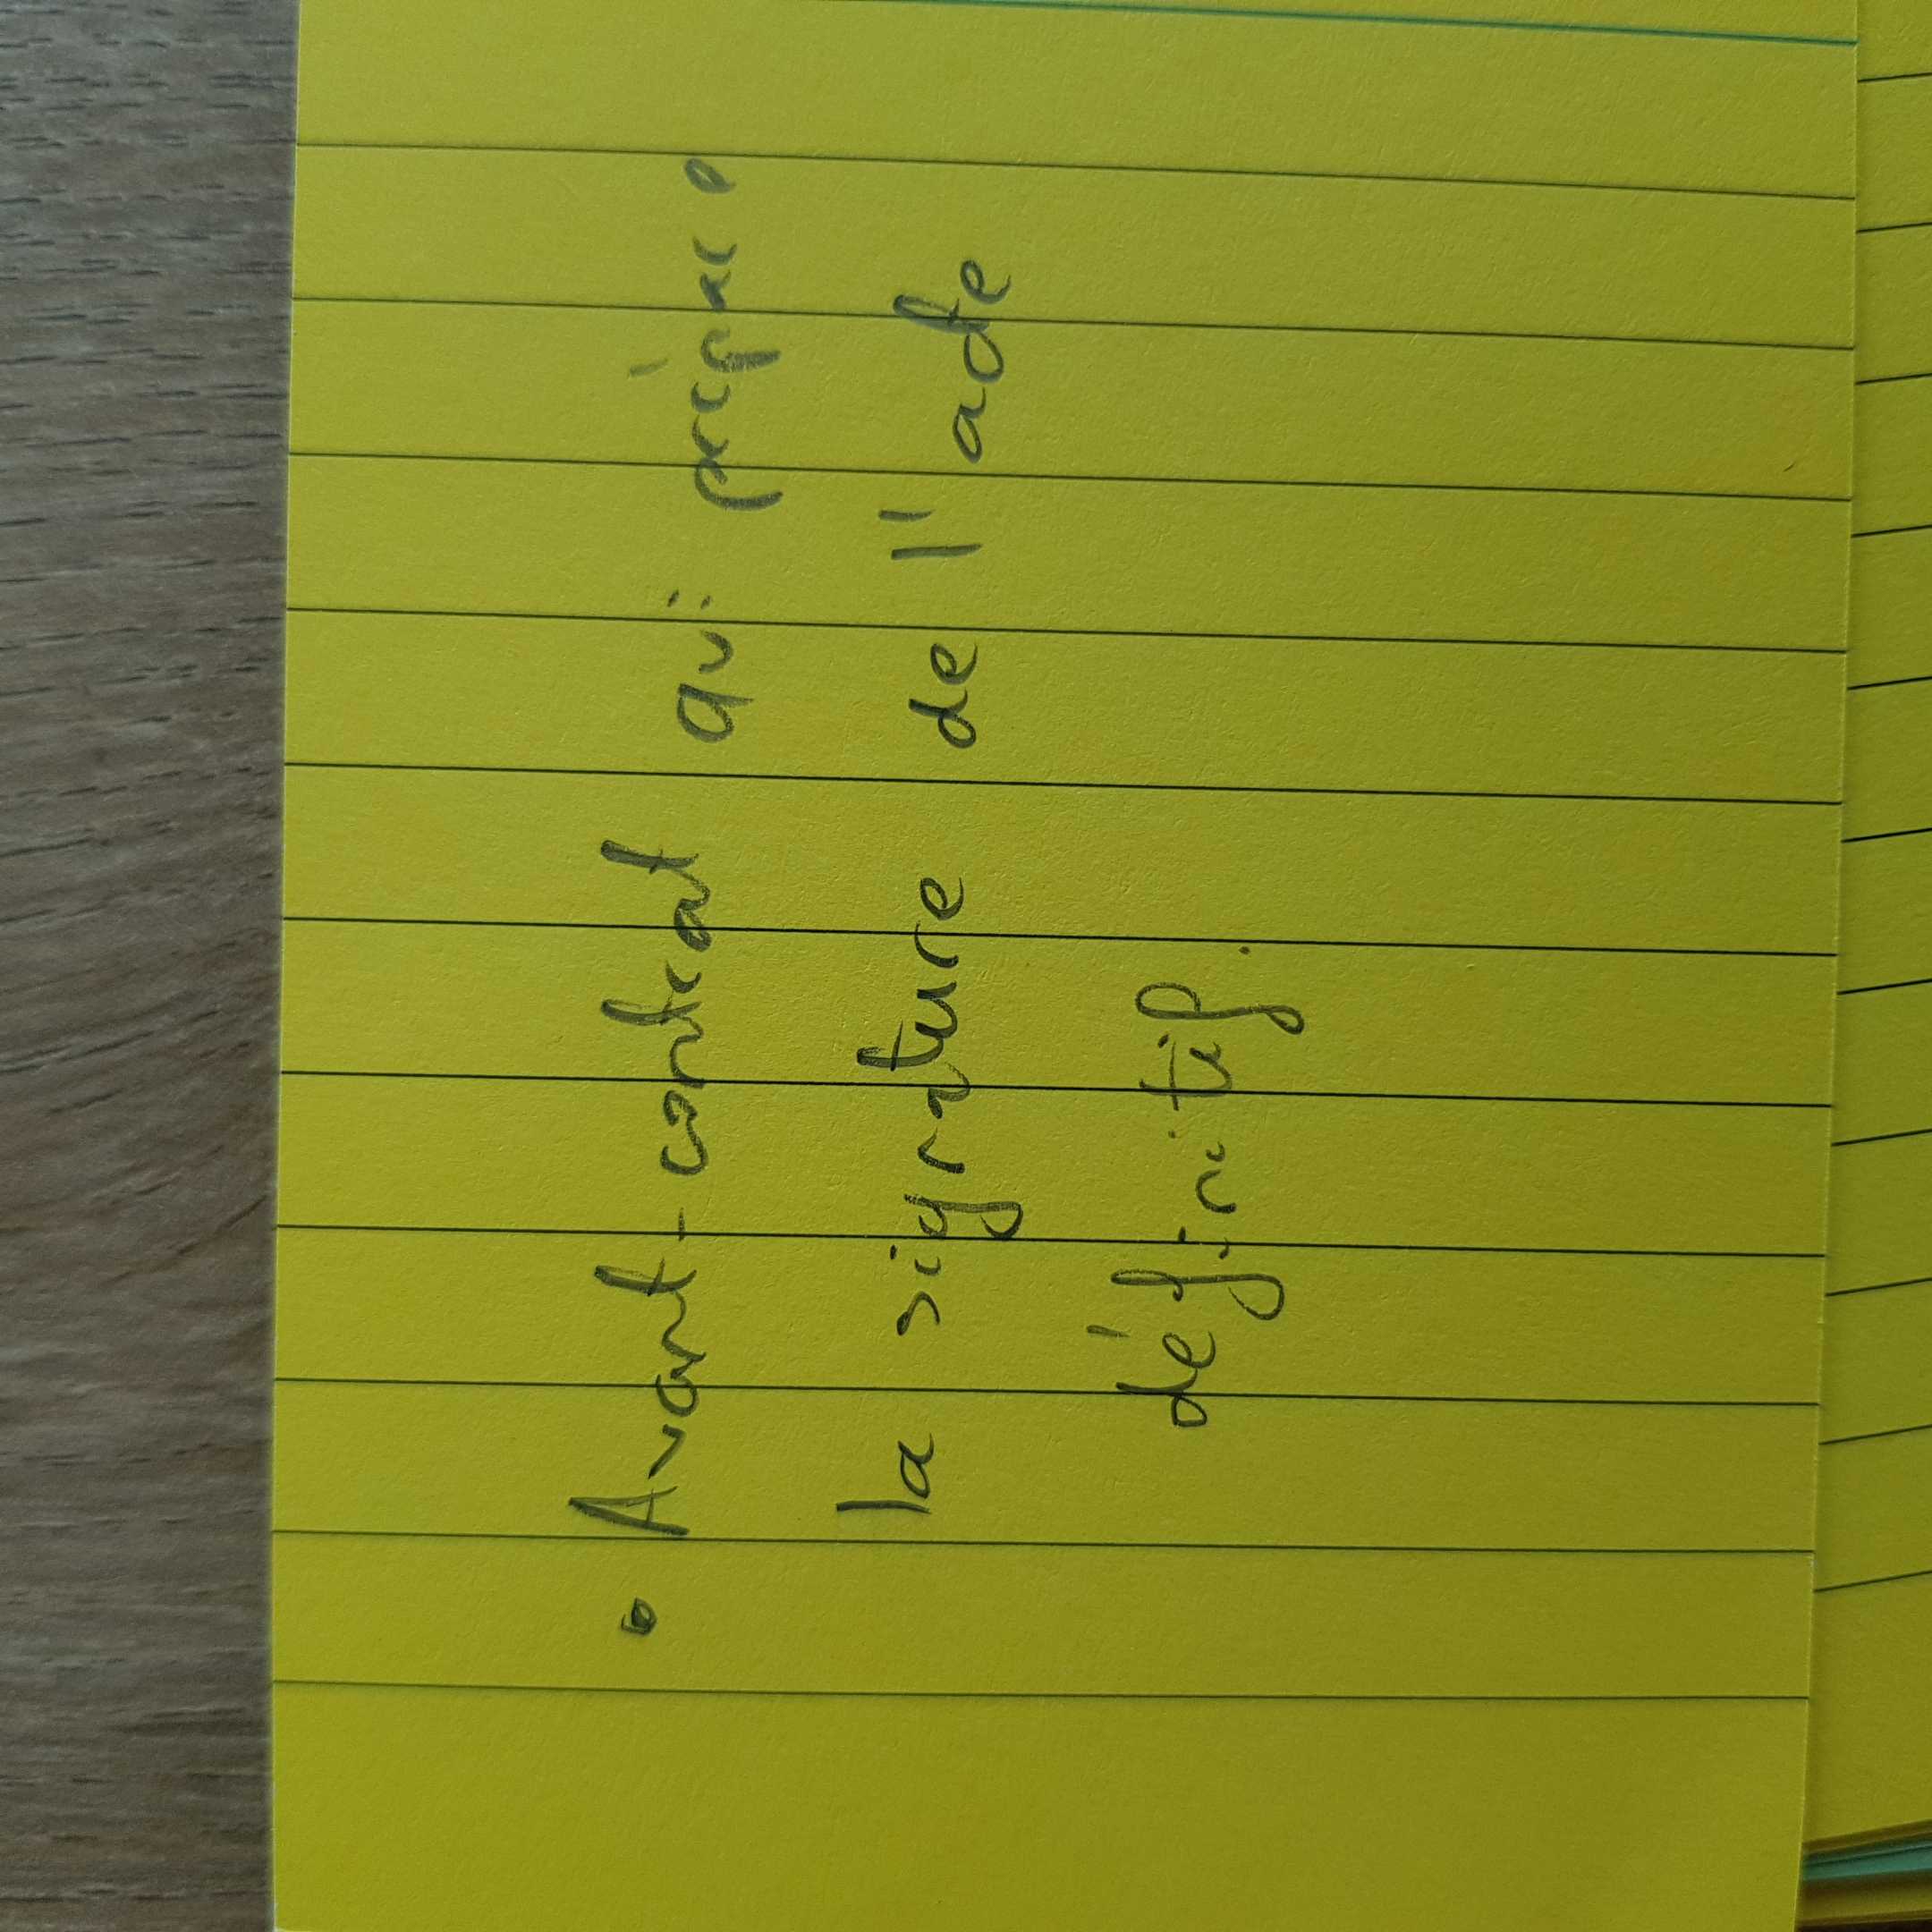 • Avant-contrat qui prépare
la signature de l'acte
définitif.